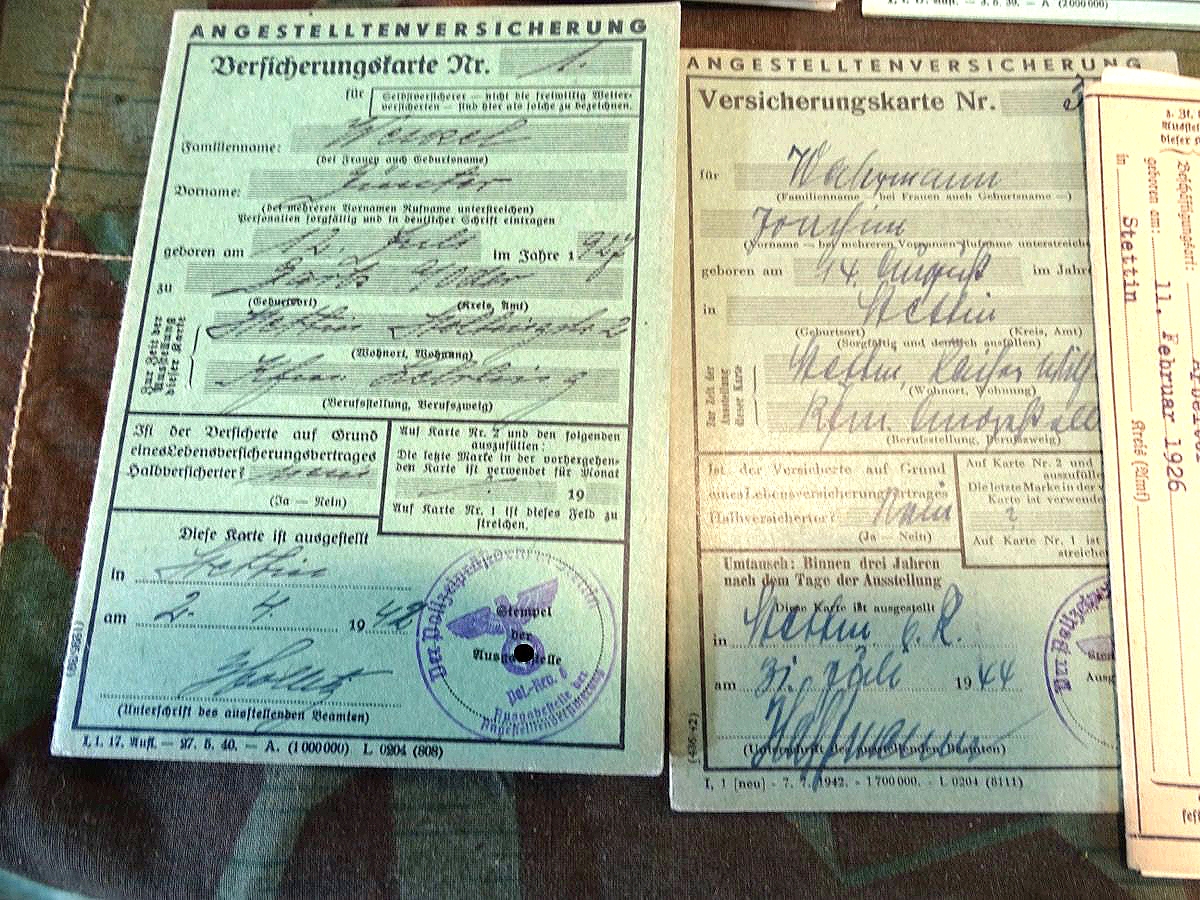 ANGESTELLTENVERSICHERUNG
Versicherungskarte Nr. 1.
für
Selbstversicherer — nicht die freiwillig Weiter-
versicherten — sind hier als solche zu bezeichnen.
Familienname:
(bei Frauen auch Geburtsname)
Vorname: Günter
(bei mehreren Vornamen Rufname unterstreichen)
Personalien sorgfältig und in deutlicher Schrift eintragen
geboren am 12. Juli im Jahre 1927
zu Gartz Oder
(Geburtsort) (Kreis, Amt)
Zur Zeit der Ausstellung dieser Karte
Stettin
(Wohnort, Wohnung)
Kfm. Lehrling
(Berufsstellung, Berufszweig)
Ist der Versicherte auf Grund
eines Lebensversicherungsvertrages
Halbversicherter? nein
(Ja — Nein)
Auf Karte Nr. 2 und den folgenden
auszufüllen:
Die letzte Marke in der vorhergehen-
den Karte ist verwendet für Monat
19
Auf Karte Nr. 1 ist dieses Feld zu
streichen.
Diese Karte ist ausgestellt
in Stettin
am 2. 4. 1942
(Unterschrift des ausstellenden Beamten)
Stempel
der
Ausgabestelle
Der Polizeipräsident Stettin
Pol.-Rev. 8
Ausgabestelle der
Angestelltenversicherung
I, 1. 17. Aufl. — 27. 5. 40. — A. (1 000 000) L 0204 (808)
ANGESTELLTENVERSICHERUNG
Versicherungskarte Nr. 3
für
(Familienname — bei Frauen auch Geburtsname —)
Joachim
(Vorname — bei mehreren Vornamen Rufname unterstreiche
geboren am 14. August im Jahr
in Stettin
(Geburtsort) (Kreis, Amt)
(Sorgfältig und deutlich ausfüllen)
Zur Zeit der Ausstellung dieser Karte
Stettin, Kaiser Wilh
(Wohnort, Wohnung)
Kfm. Angestell
(Berufsstellung, Berufszweig)
Ist der Versicherte auf Grund
eines Lebensversicherungsvertrages
Halbversicherter? Nein
(Ja — Nein)
Auf Karte Nr. 2 und
auszufülle
Die letzte Marke in der v
Karte ist verwende
Auf Karte Nr. 1 ist
streiche
Umtausch: Binnen drei Jahren
nach dem Tage der Ausstellung
Diese Karte ist ausgestellt
in Stettin
am 31. Juli 1944
(Unterschrift des ausstellenden Beamten)
Der Polizei
I, 1 [neu] - 7. 7. 1942. - 1 700 000. - L 0204 (8111)
geboren am: 11. Februar 1926
in Stettin Kreis (Amt)
I, 1. 17. Aufl. — 3. 5. 39. — A (2 000 000)